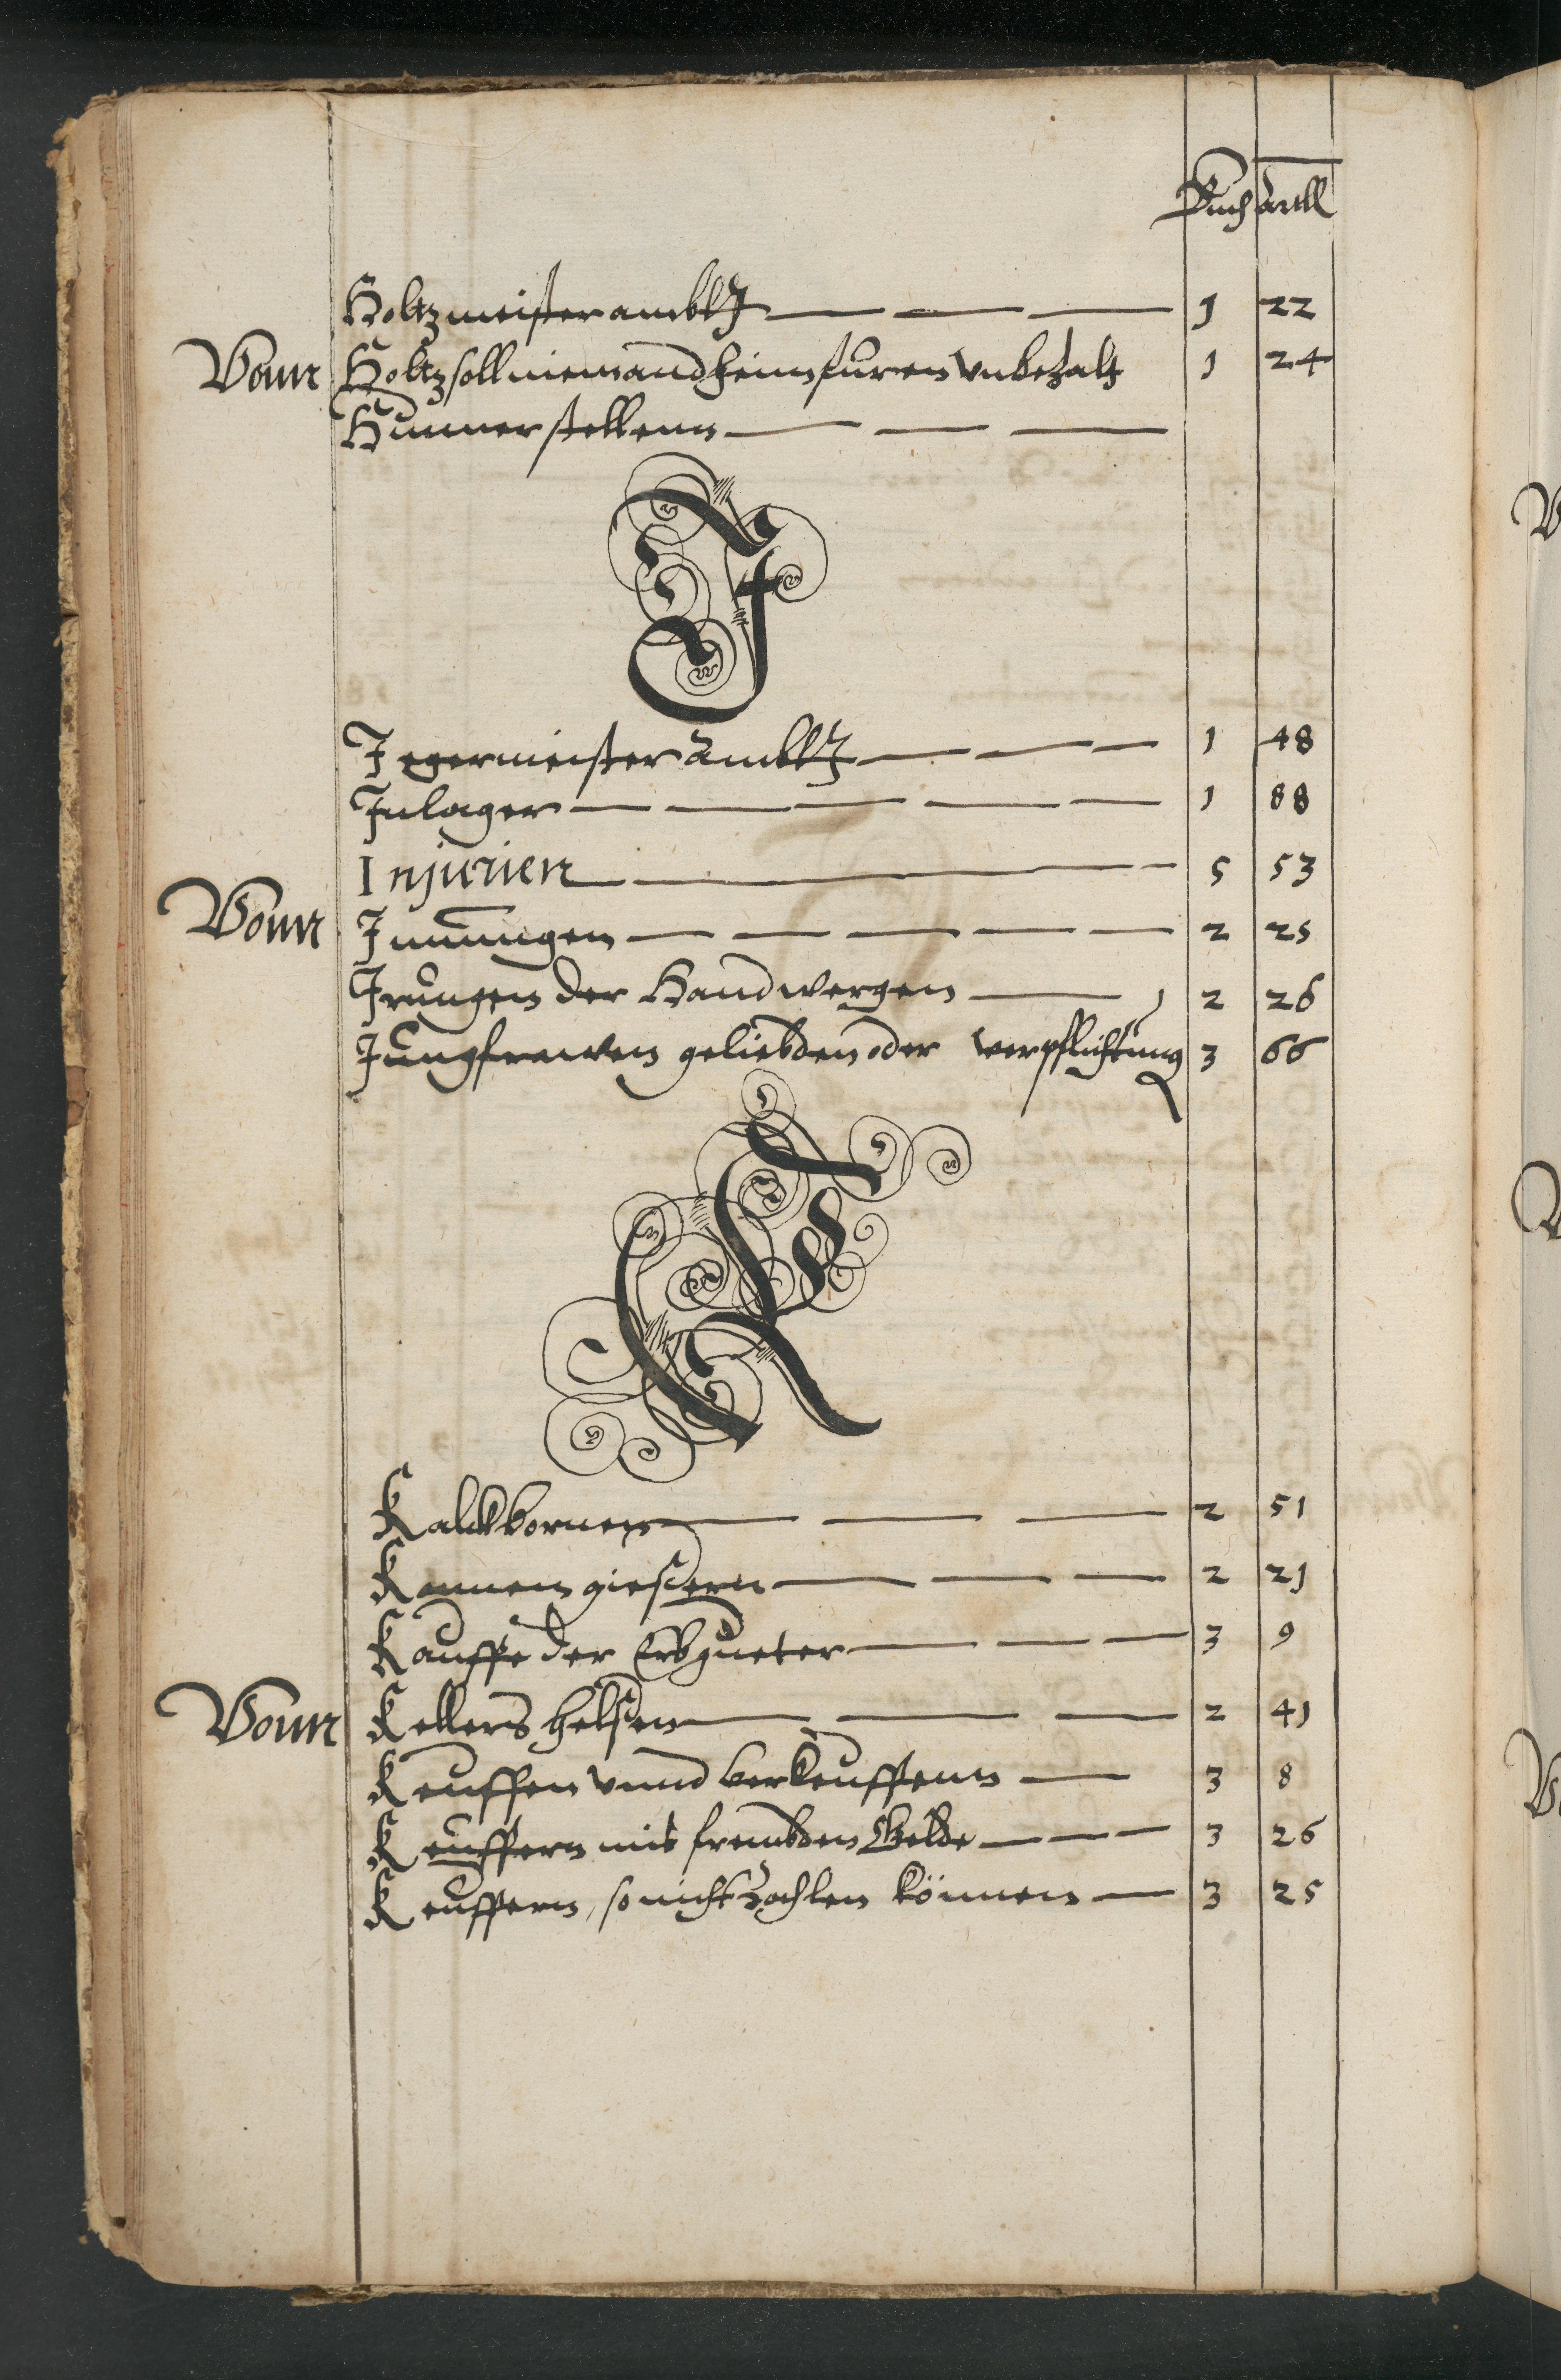 Buch Artll
Holtzmeister ambtt 1 22
Vonn Holtz soll niemand heim furen vnbezalt 1 24
Hunner stellenn
J
Jegermeister Ambtt 1 48
Inlager 1 88
Injurien 5 53
Vonn Innungen 2 25
Irrungen der Handwergen 2 26
Jungfrawen geliebden oder verpflichtung 3 66
K
Kalckbornen 2 51
Kannengiessern 2 21
Kauffe der Erbgueter 3 9
Vonn Kellers helsen 2 41
Keuffen vnnd verkeuffenn 3 8
Keuffern mit frembden Gelde 3 26
Keuffern, so nicht Zahlen können 3 25